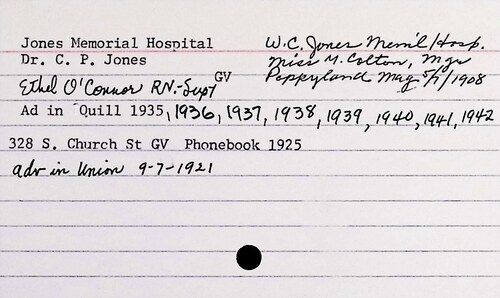 Jones Memorial Hospital
W.C. Jones Mem'l Hosp.
Dr. C. P. Jones
Miss M. Colton, Mgr
Ethel O'Connor RN.-Supt GV
Poppyland Mag 5/7/1908
Ad in Quill 1935, 1936, 1937, 1938, 1939, 1940, 1941, 1942
328 S. Church St GV Phonebook 1925
adv in Union 9-7-1921